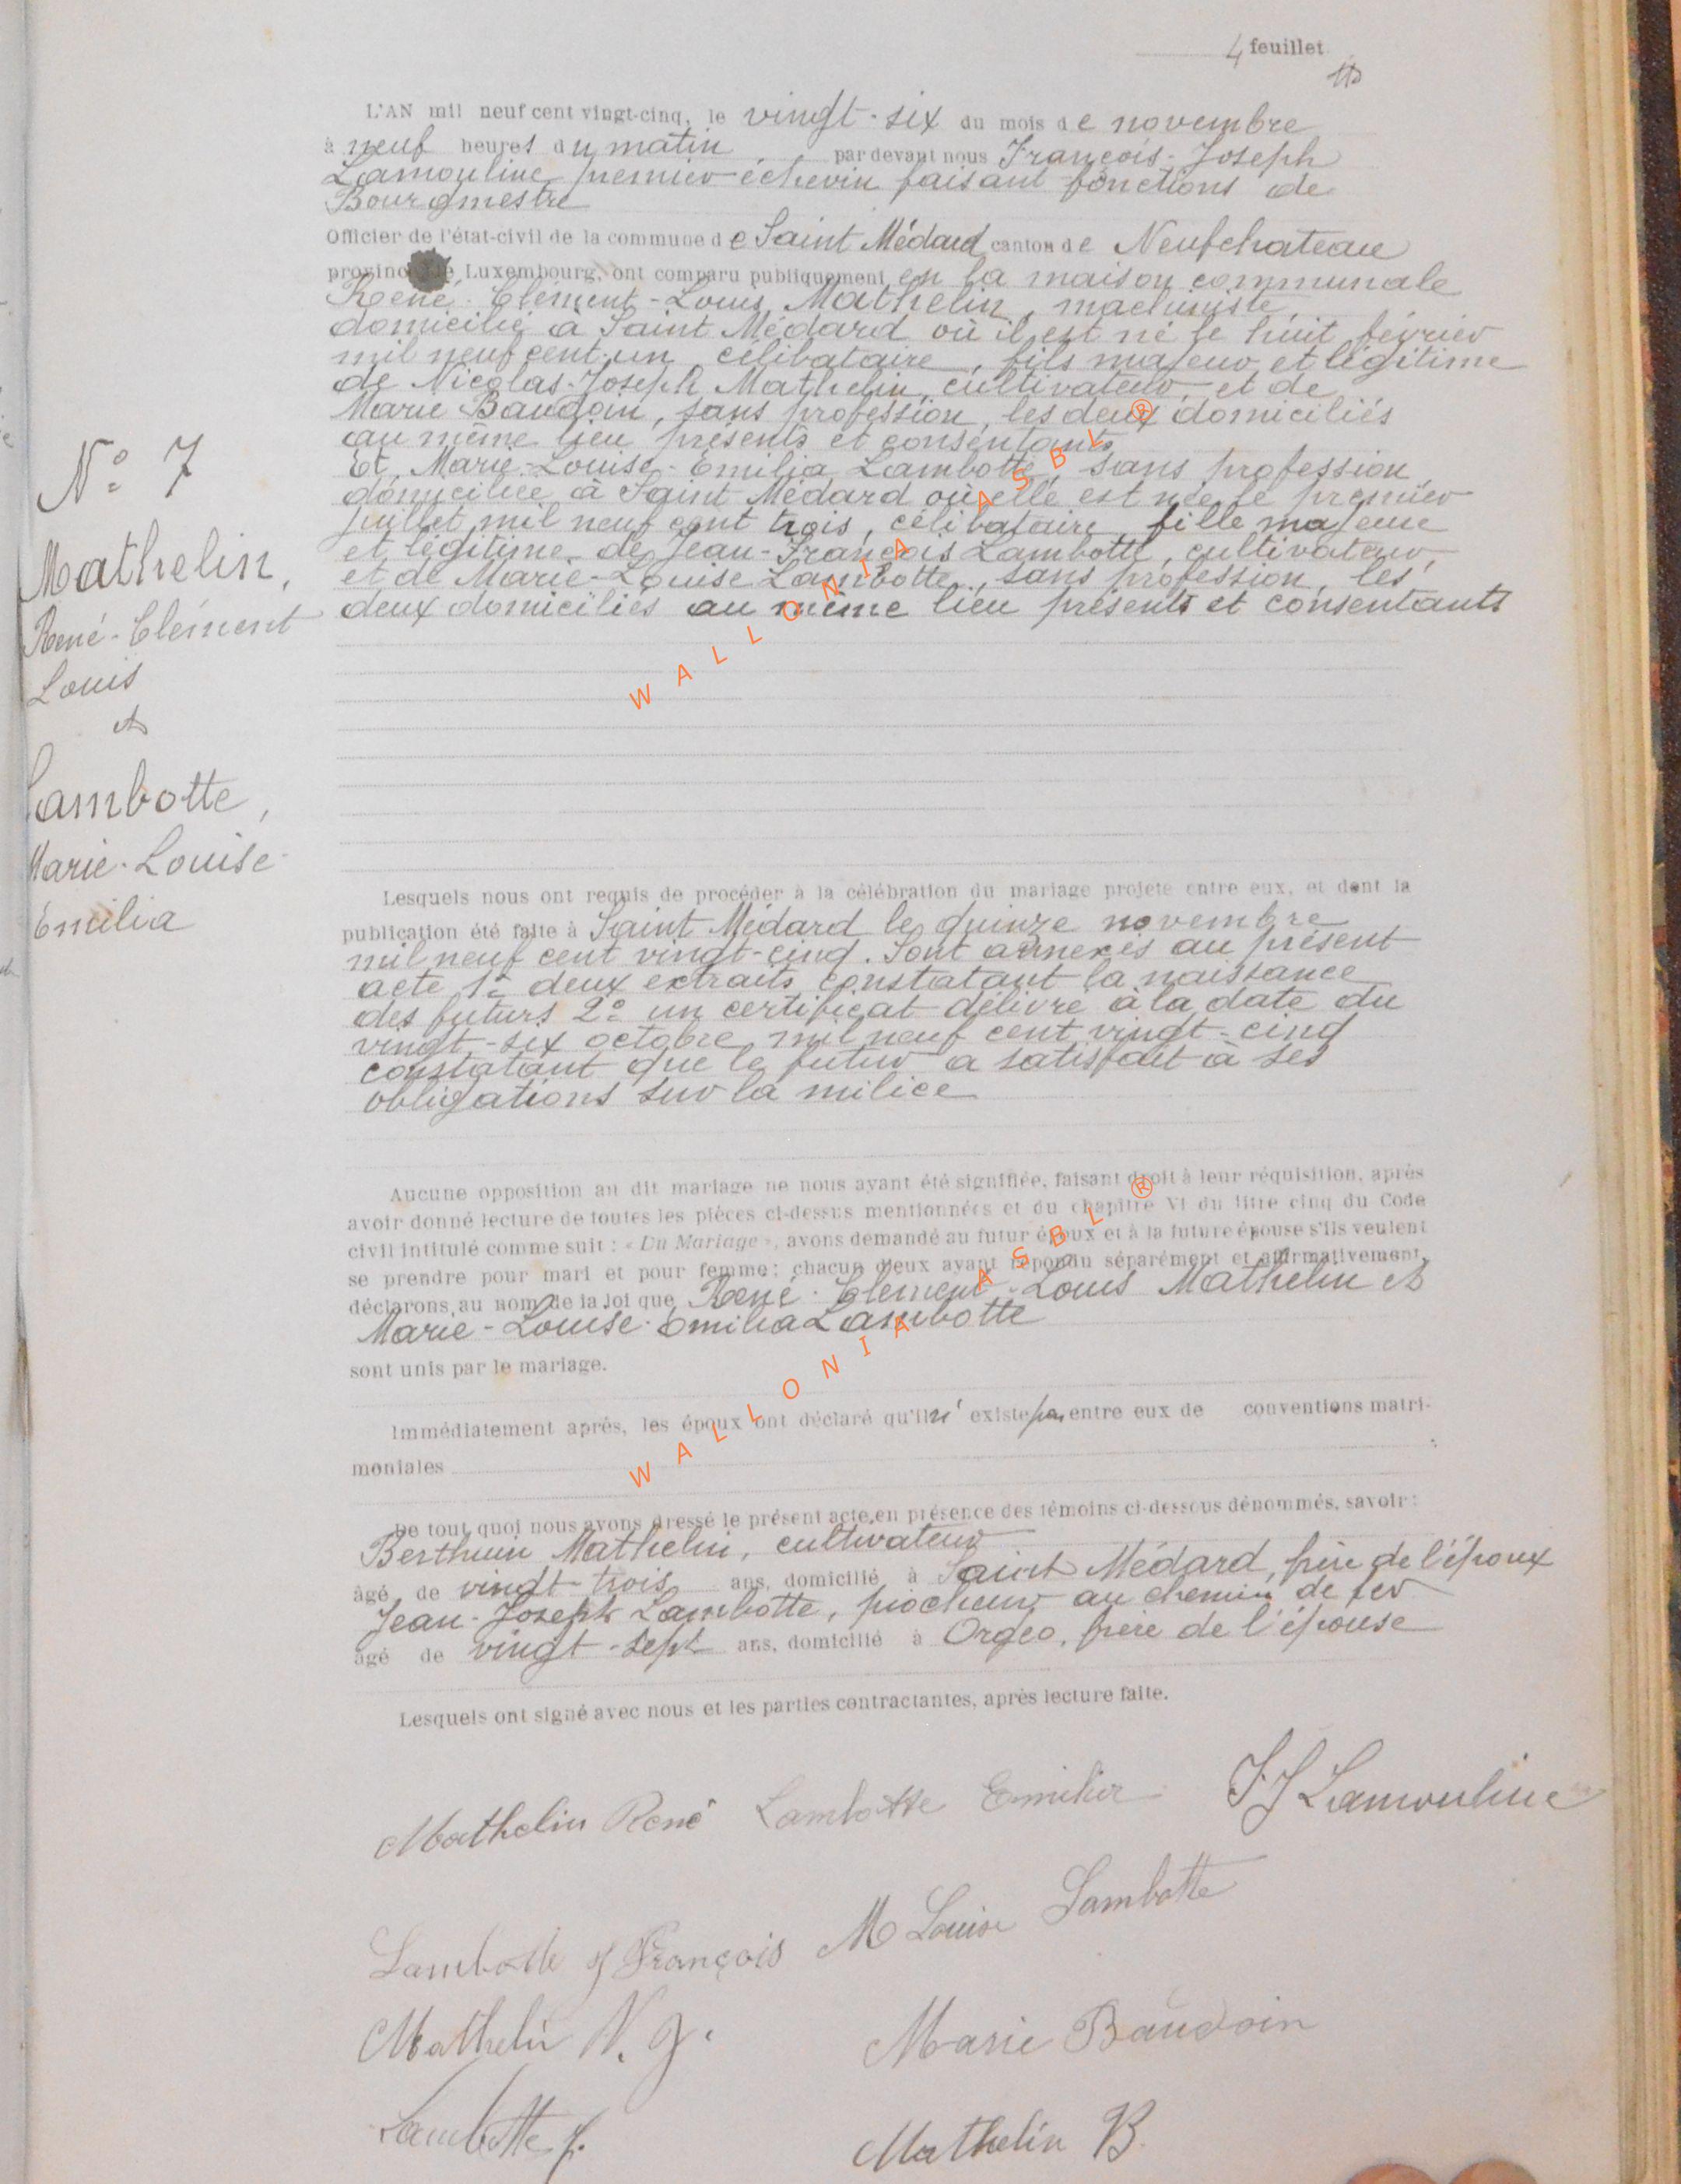 4 feuillet
L'AN mil neuf cent vingt-cinq, le vingt-six du mois de novembre
à neuf heures du matin par devant nous François-Joseph
Lamouline premier échevin faisant fonctions de
Bourgmestre
Officier de l'état-civil de la commune de Saint Médard canton de Neufchateau
province de Luxembourg, ont comparu publiquement en la maison communale
René-Clément-Louis Mathelin, machiniste,
domicilié à Saint Médard où il est né le huit février
mil neuf cent un, célibataire, fils majeur et légitime
de Nicolas-Joseph Mathelin, cultivateur, et de
Marie Baudoin, sans profession, les deux domiciliés
au même lieu présents et consentants
Et Marie-Louise-Emilia Lambotte, sans profession,
domiciliée à Saint Médard où elle est née le premier
juillet mil neuf cent trois, célibataire, fille majeure
et légitime de Jean-François Lambotte, cultivateur,
et de Marie-Louise Lambotte, sans profession, les
deux domiciliés au même lieu présents et consentants
N° 7
Mathelin,
René-Clément
Louis
et
Lambotte,
Marie-Louise-
Emilia
Lesquels nous ont requis de procéder à la célébration du mariage projeté entre eux, et dont la
publication été faite à Saint Médard le quinze novembre
mil neuf cent vingt-cinq. Sont annexés au présent
acte 1° deux extraits constatant la naissance
des futurs 2° un certificat délivré à la date du
vingt-six octobre mil neuf cent vingt-cinq
constatant que le futur a satisfait à ses
obligations sur la milice
Aucune opposition au dit mariage ne nous ayant été signifiée, faisant droit à leur réquisition, après
avoir donné lecture de toutes les pièces ci-dessus mentionnées et du chapitre VI du titre cinq du Code
civil intitulé comme suit : « Du Mariage », avons demandé au futur époux et à la future épouse s'ils veulent
se prendre pour mari et pour femme; chacun d'eux ayant répondu séparément et affirmativement,
déclarons au nom de la loi que René-Clément-Louis Mathelin et
Marie-Louise-Emilia Lambotte
sont unis par le mariage.
Immédiatement après, les époux ont déclaré qu'il n'existe pas entre eux de conventions matri-
moniales
De tout quoi nous avons dressé le présent acte, en présence des témoins ci-dessous dénommés, savoir :
Berthuin Mathelin, cultivateur
âgé de vingt-trois ans, domicilié à Saint Médard, frère de l'époux
Jean-Joseph Lambotte, piocheur au chemin de fer
âgé de vingt-sept ans, domicilié à Orgeo, frère de l'épouse
Lesquels ont signé avec nous et les parties contractantes, après lecture faite.
Mathelin René Lambotte Emilia FJ Lamouline
Lambotte J François M Louise Lambotte
Mathelin N. J. Marie Baudoin
Lambotte J. Mathelin B.
WALLONIA ASBL ®
WALLONIA ASBL ®